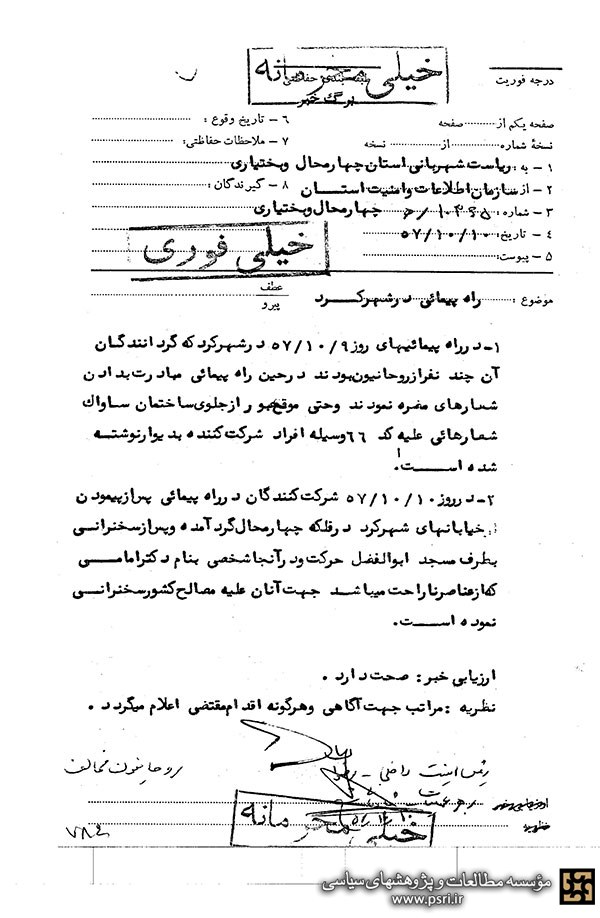 خیلی محرمانه
طبقه بندی حفاظتی
برگ خبر
درجه فوریت
صفحه یکم از ........ صفحه
نسخهٔ شماره ........ از ........ نسخه
۱ – به : ریاست شهربانی استان چهارمحال وبختیاری
۲ – از : سازمان اطلاعات وامنیت استان
۳ – شماره : چهارمحال وبختیاری
۴ – تاریخ : ۵۷/۱۰/۱۰
۵ – پیوست:
۶ – تاریخ وقوع :
۷ – ملاحظات حفاظتی:
۸ – گیرندگان :
خیلی فوری
موضوع : راه پیمائی در شهرکرد
عطف
پیرو
۱- در راه پیمائیهای روز ۵۷/۱۰/۹ در شهرکرد که گردانندگان
آن چند نفر از روحانیون بودند در حین راه پیمائی مبادرت بدادن
شعارهای مضره نمودند وحتی موقع عبور از جلوی ساختمان ساواک
شعارهائی علیه کد ۶۶ وسیله افراد شرکت کننده بدیوار نوشته
شده است.
۲- در روز ۵۷/۱۰/۱۰ شرکت کنندگان در راه پیمائی پس از پیمودن
خیابانهای شهرکرد در فلکه چهارمحال گرد آمده وپس از سخنرانی
بطرف مسجد ابوالفضل حرکت ودر آنجا شخصی بنام دکتر امامی
که از عناصر ناراحت میباشد جهت آنان علیه مصالح کشور سخنرانی
نموده است.
ارزیابی خبر : صحت دارد .
نظریه : مراتب جهت آگاهی وهرگونه اقدام مقتضی اعلام میگردد .
روحانیون مخالف
خیلی محرمانه
مؤسسه مطالعات و پژوهشهای سیاسی
www.psri.ir